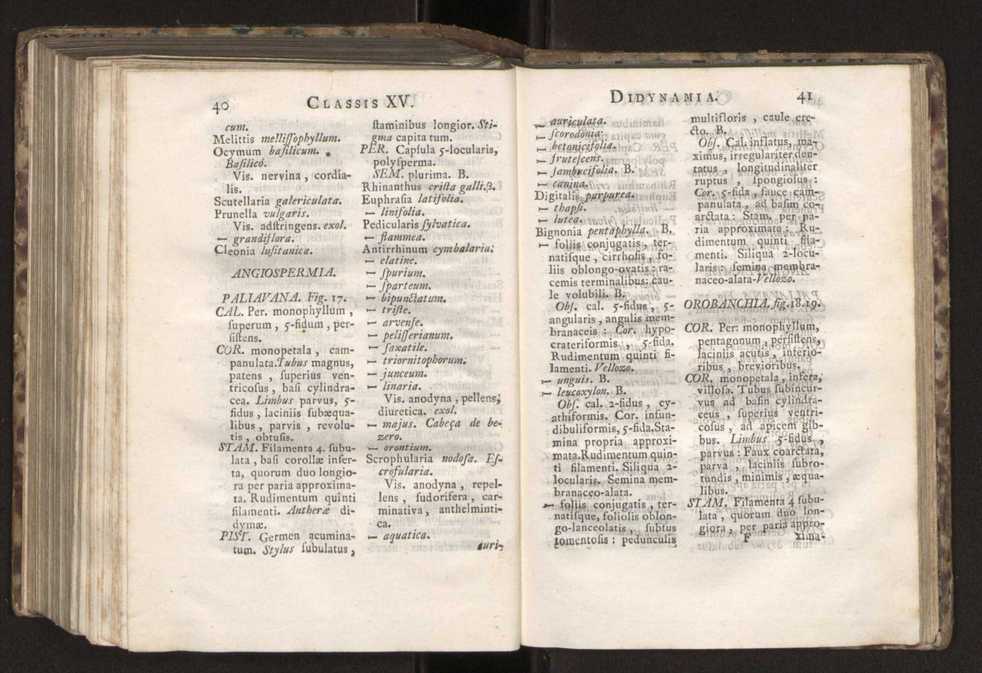 40 CLASSIS XV.
cum.
Melittis melliſſophyllum.
Ocymum baſilicum.
Baſilicò.
Vis. nervina, cordia-
lis.
Scutellaria galericulata.
Prunella vulgaris.
Vis. adſtringens. exol.
— grandiflora.
Cleonia luſitanica.
ANGIOSPERMIA.
PALIAVANA. Fig. 17.
CAL. Per. monophyllum,
ſuperum, 5-fidum, per-
ſiſtens.
COR. monopetala, cam-
panulata. Tubus magnus,
patens, ſuperius ven-
tricoſus, baſi cylindra-
cea. Limbus parvus, 5-
fidus, laciniis ſubæqua-
libus, parvis, revolu-
tis, obtuſis.
STAM. Filamenta 4. ſubu-
lata, baſi corollæ inſer-
ta, quorum duo longio-
ra per paria approxima-
ta. Rudimentum quinti
filamenti. Antheræ di-
dymæ.
PIST. Germen acumina-
tum. Stylus ſubulatus,
ſtaminibus longior. Sti-
gma capitatum.
PER. Capſula 5-locularis,
polyſperma.
SEM. plurima. B.
Rhinanthus criſta galli. B.
Euphraſia latifolia.
— linifolia.
Pedicularis ſylvatica.
— flammea.
Antirrhinum cymbalaria.
— elatine.
— ſpurium.
— ſparteum.
— bipunctatum.
— triſte.
— arvenſe.
— peliſſerianum.
— ſaxatile.
— triornitophorum.
— junceum.
— linaria.
Vis. anodyna, pellens,
diuretica. exol.
— majus. Cabeça de be-
zero.
— orontium.
Scrophularia nodoſa. Eſ-
crofularia.
Vis. anodyna, repel-
lens, ſudorifera, car-
minativa, anthelminti-
ca.
— aquatica.
auri-
DIDYNAMIA. 41
— auriculata.
— ſcorodonia.
— betonicifolia.
— fruteſcens.
— ſambucifolia. B.
— canina.
Digitalis purpurea.
— thapſi.
— lutea.
Bignonia pentaphylla. B.
— foliis conjugatis, ter-
natiſque, cirrhoſis, fo-
liis oblongo-ovatis: ra-
cemis terminalibus: cau-
le volubili. B.
Obſ. cal. 5-fidus, 5-
angularis, angulis mem-
branaceis: Cor. hypo-
crateriformis, 5-fida.
Rudimentum quinti fi-
lamenti. Vellozo.
— unguis. B.
— leucoxylon. B.
Obſ. cal. 2-fidus, cy-
athiformis. Cor. infun-
dibuliformis, 5-fida. Sta-
mina propria approxi-
mata. Rudimentum quin-
ti filamenti. Siliqua 2-
locularis. Semina mem-
branaceo-alata.
— foliis conjugatis, ter-
natiſque, foliolis oblon-
go-lanceolatis, ſubtus
tomentoſis: pedunculis
multifloris, caule ere-
cto. B.
Obſ. Cal. inflatus, ma-
ximus, irregulariter den-
tatus, longitudinaliter
ruptus, ſpongioſus:
Cor. 5-fida, fauce cam-
panulata, ad baſim co-
arctata: Stam. per pa-
ria approximata: Ru-
dimentum quinti fila-
menti. Siliqua 2-locu-
laris: ſemina membra-
naceo-alata. Vellozo.
OROBANCHIA. fig. 18. 19.
COR. Per: monophyllum,
pentagonum, perſiſtens,
laciniis acutis, inferio-
ribus, brevioribus.
COR. monopetala, infera,
villoſa. Tubus ſubincur-
vus ad baſin cylindra-
ceus, ſuperius ventri-
coſus, ad apicem gib-
bus. Limbus 5-fidus,
parvus: Faux coarctata,
parva, laciniis ſubro-
tundis, minimis, æqua-
libus.
STAM. Filamenta 4 ſubu-
lata, quorum duo lon-
giora, per paria appro-
F xima-